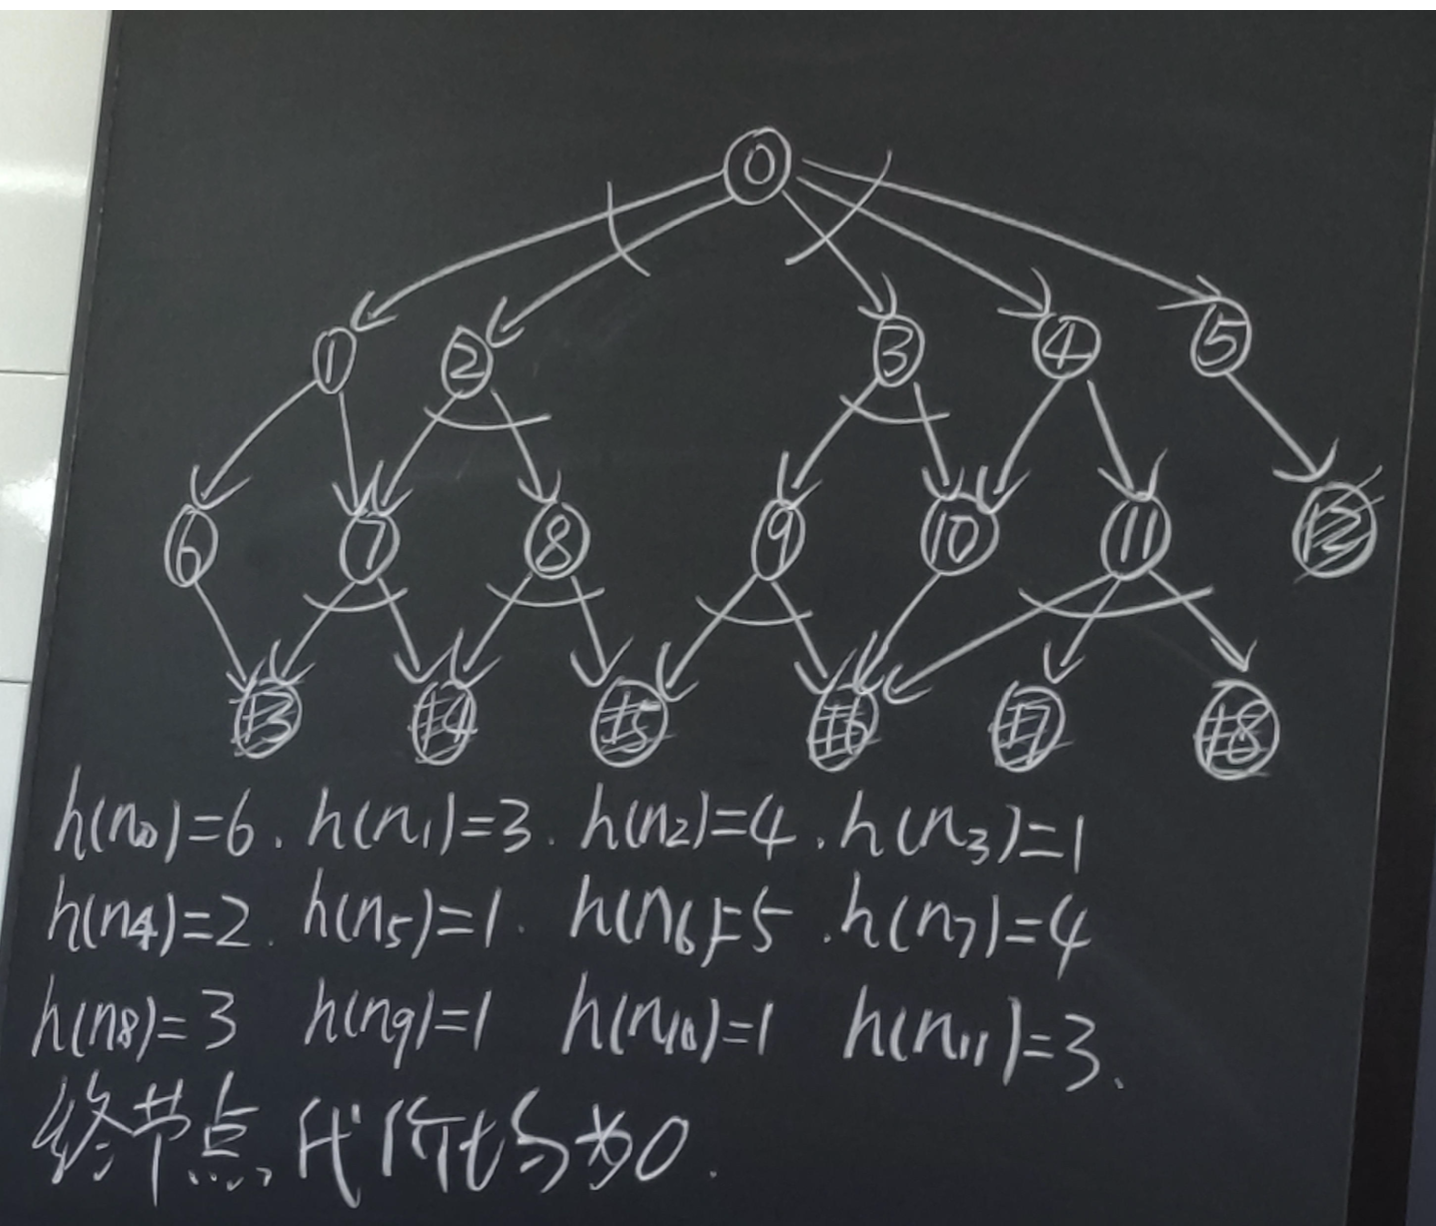 0
1 2 3 4 5
6 7 8 9 10 11 12
13 14 15 16 17 18
h(n₀)=6. h(n₁)=3. h(n₂)=4. h(n₃)=1
h(n₄)=2. h(n₅)=1. h(n₆)=5. h(n₇)=4
h(n₈)=3 h(n₉)=1 h(n₁₀)=1 h(n₁₁)=3.
终节点代价均为0.